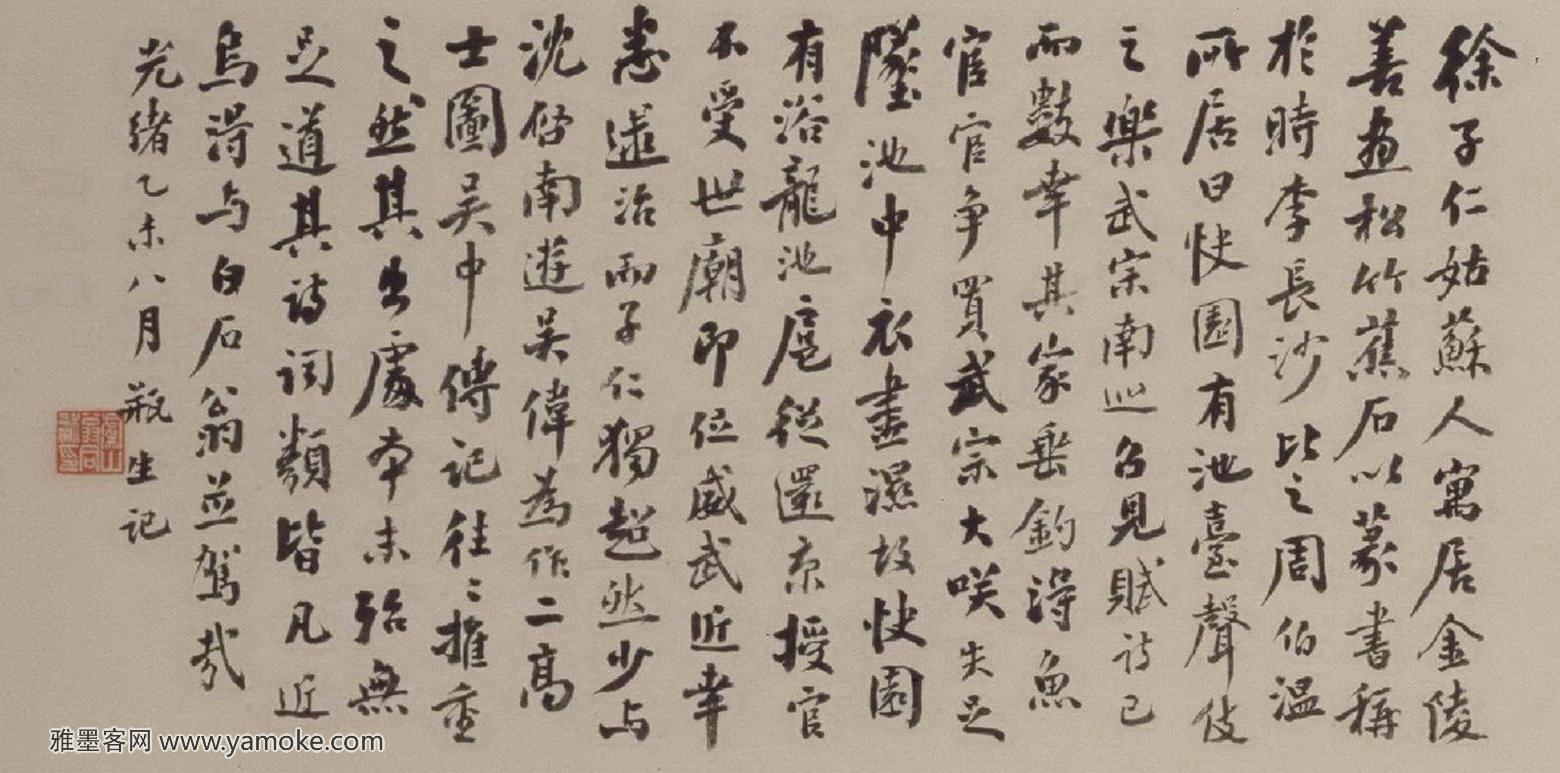 徐子仁姑蘇人寓居金陵
善畫松竹蕉石以篆書稱
於時李長沙比之周伯溫
所居曰快園有池臺聲伎
之樂武宗南巡召見賦诗已
而數幸其家垂釣得魚
宦官争買武宗大咲失足
墜池中衣盡濕故快園
有浴龍池扈從還京授官
不受世廟即位威武近幸
悉逮治而子仁獨超然少与
沈啓南遊吴偉為作二高
士圖吴中傳记往〻推重
之然其出處本末殆無
足道其诗词類皆凡近
烏得与白石翁並駕哉
光绪乙未八月 瓶生记
雅墨客网 www.yamoke.com